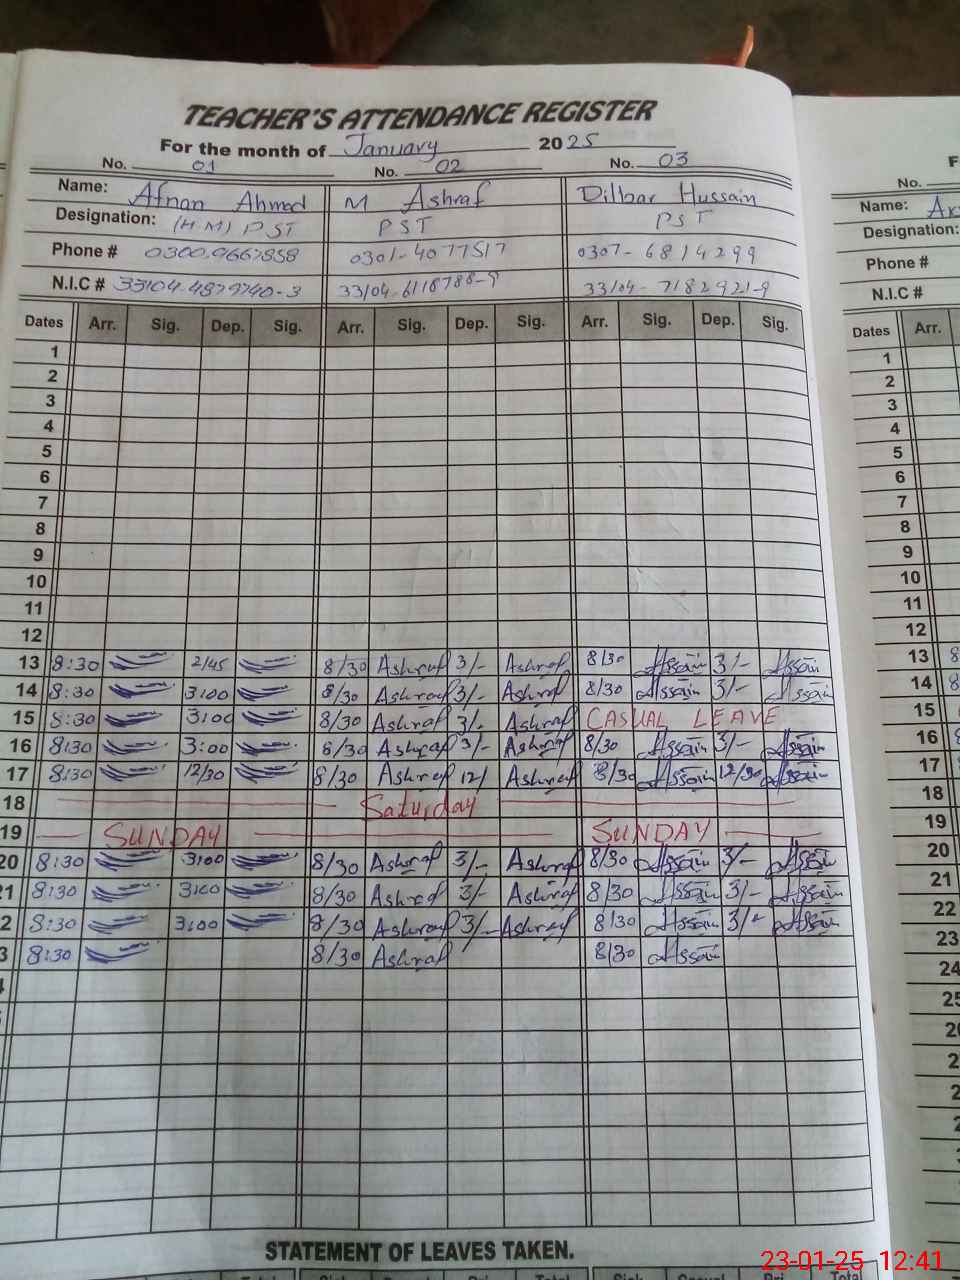 TEACHER'S ATTENDANCE REGISTER
For the month of January 2025
No. 01 No. 02 No. 03
Name: Afnan Ahmad M Ashraf Dilbar Hussain
Designation: (H.M) PST PST PST
Phone # 0300.9667858 0301-4077517 0307-6814299
N.I.C # 33104.4879740-3 33104.6118788-9 33104-7182921-9
Dates Arr. Sig. Dep. Sig. Arr. Sig. Dep. Sig. Arr. Sig. Dep. Sig.
1
2
3
4
5
6
7
8
9
10
11
12
13 8:30 2/45 8/30 Ashraf 3/- Ashraf 8/30 Hssain 3/- Hssain
14 8:30 3:00 8/30 Ashraf 3/- Ashraf 8/30 Hssain 3/- Hssain
15 8:30 3:00 8/30 Ashraf 3/- Ashraf CASUAL LEAVE
16 8:30 3:00 8/30 Ashraf 3/- Ashraf 8/30 Hssain 3/- Hssain
17 8:30 12/30 8/30 Ashraf 12/ Ashraf 8/30 Hssain 12/30 Hssain
18 Saturday
19 SUNDAY SUNDAY
20 8:30 3:00 8/30 Ashraf 3/- Ashraf 8/30 Hssain 3/- Hssain
1 8:30 3:00 8/30 Ashraf 3/- Ashraf 8/30 Hssain 3/- Hssain
2 8:30 3:00 8/30 Ashraf 3/- Ashraf 8/30 Hssain 3/- Hssain
3 8:30 8/30 Ashraf 8/30 Hssain
STATEMENT OF LEAVES TAKEN.
F
No.
Name:
Designation:
Phone #
N.I.C #
Dates Arr.
1
2
3
4
5
6
7
8
9
10
11
12
13 8
14 8
15
16 8
17 8
18
19
20
21
22
23
24
25
23-01-25 12:41